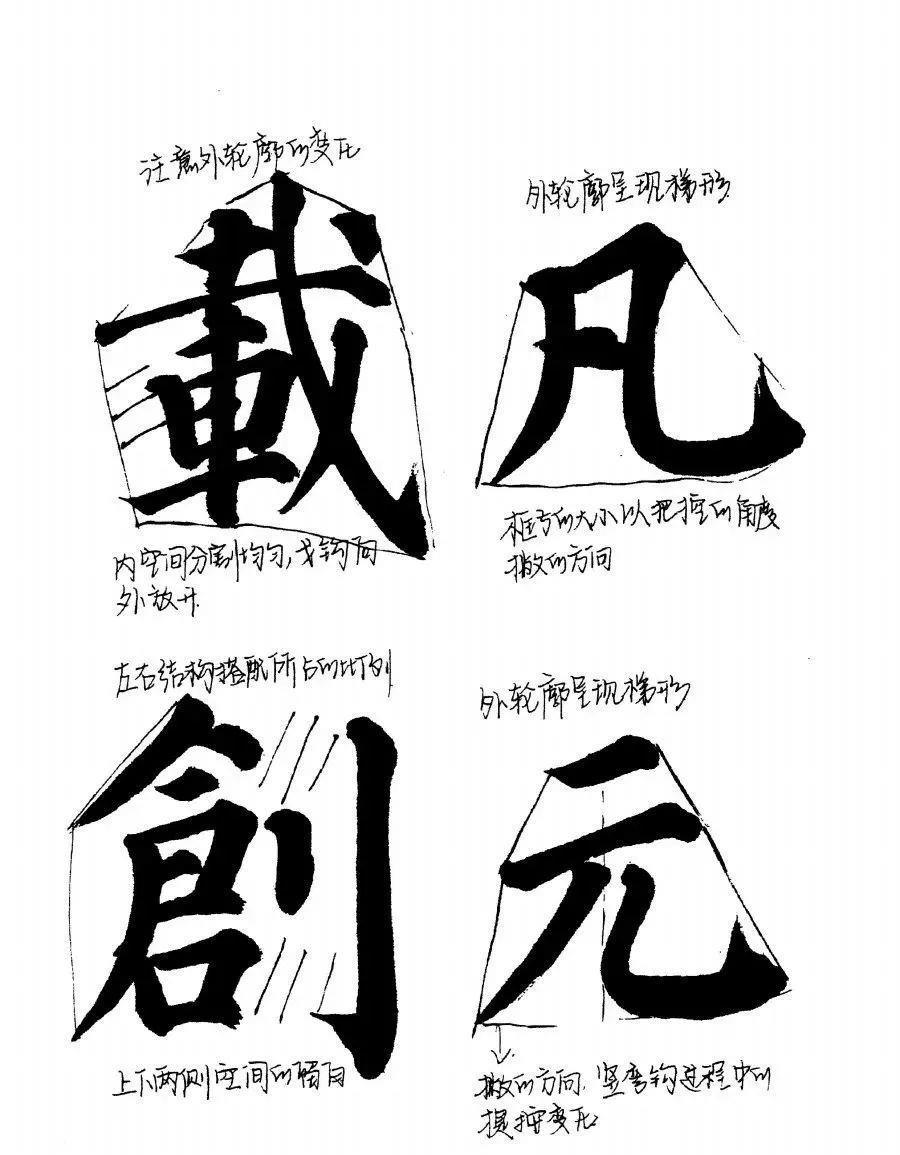 注意外轮廓的变化
載
内空间分割均匀,戈钩向
外放开.
外轮廓呈现梯形
凡
框与的大小以把控的角度
撇的方向
左右结构搭配所占的比例
創
上下两侧空间的留白
外轮廓呈现梯形
元
撇的方向.竖弯钩过程中的
提按变化